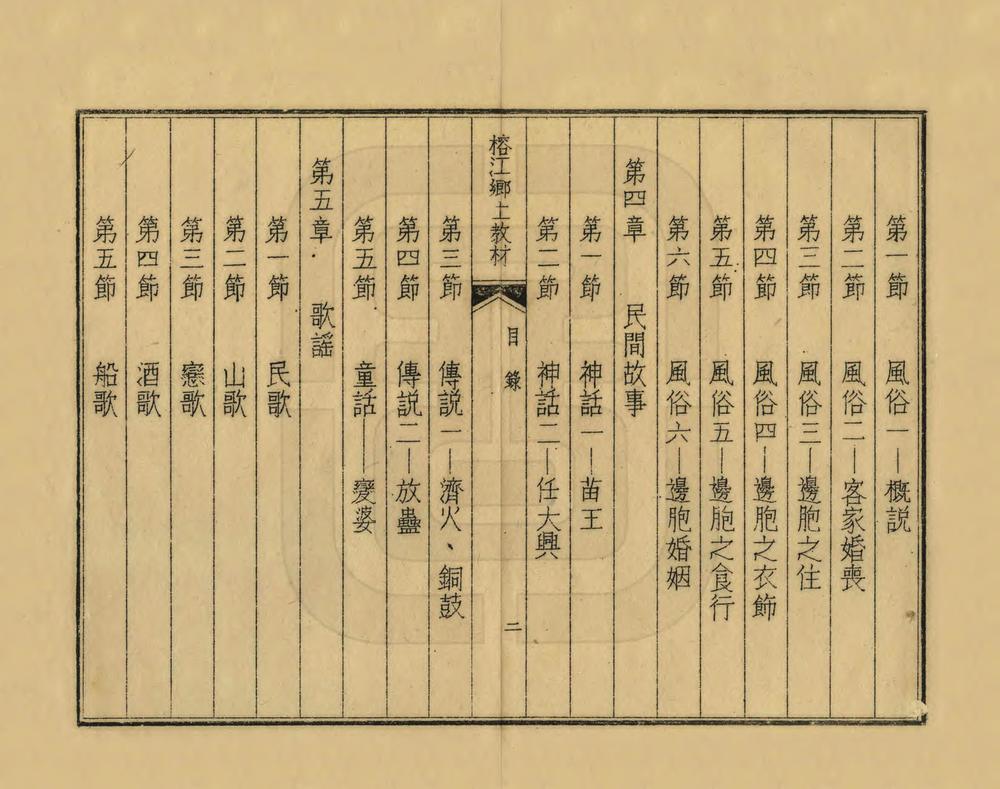 第一節 風俗一—概説
第二節 風俗二—客家婚喪
第三節 風俗三—邊胞之住
第四節 風俗四—邊胞之衣飾
第五節 風俗五—邊胞之食行
第六節 風俗六—邊胞婚姻
第四章 民間故事
第一節 神話一—苗王
第二節 神話二—任大興
榕江鄉土教材 目錄 二
第三節 傳説一—濟火、銅鼓
第四節 傳説二—放蠱
第五節 童話—變婆
第五章 歌謡
第一節 民歌
第二節 山歌
第三節 戀歌
第四節 酒歌
第五節 船歌